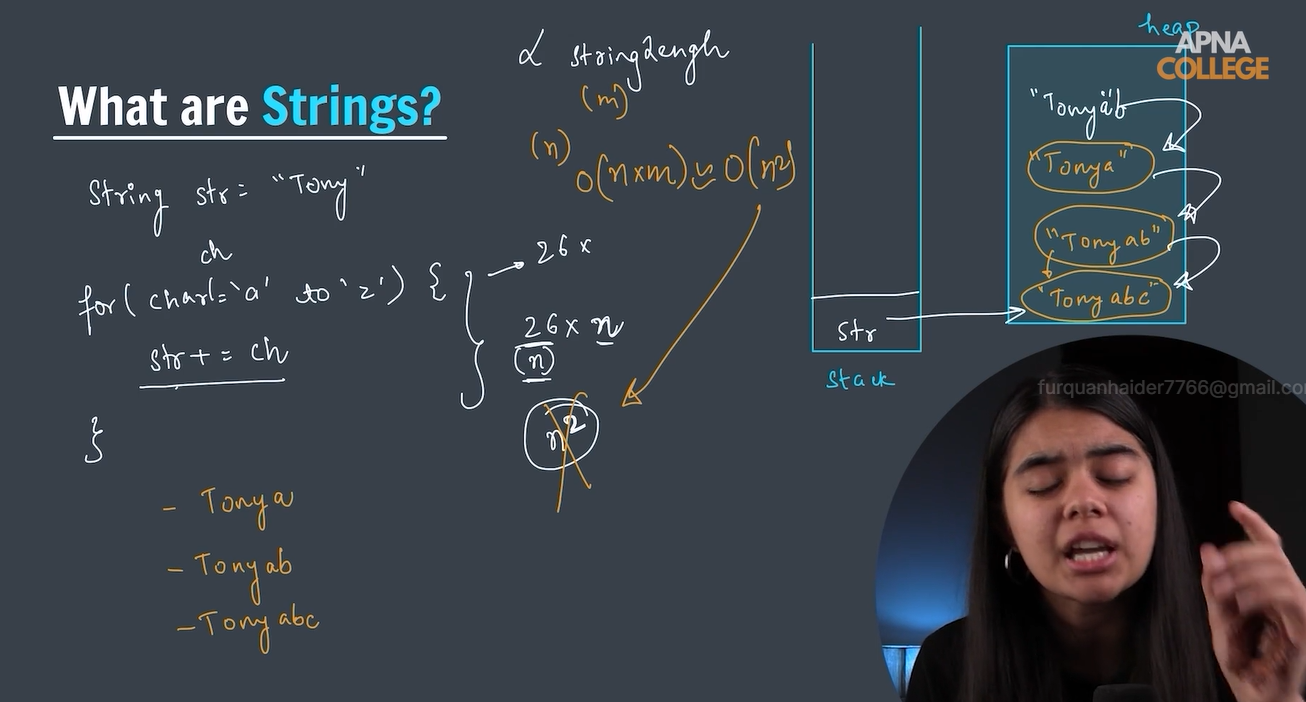 What are Strings?
String str = "Tony"
ch
for( char = 'a' to 'z') {
str + = ch
}
- Tonya
- Tonyab
- Tonyabc
26 x
26 x n
(n)
n2
α stringLengh
(m)
(n)
O(n×m) ≌ O(n2)
str
stack
heap
APNA
COLLEGE
"Tony"
"Tonya"
"Tonyab"
"Tonyabc"
furquanhaider7766@gmail.co